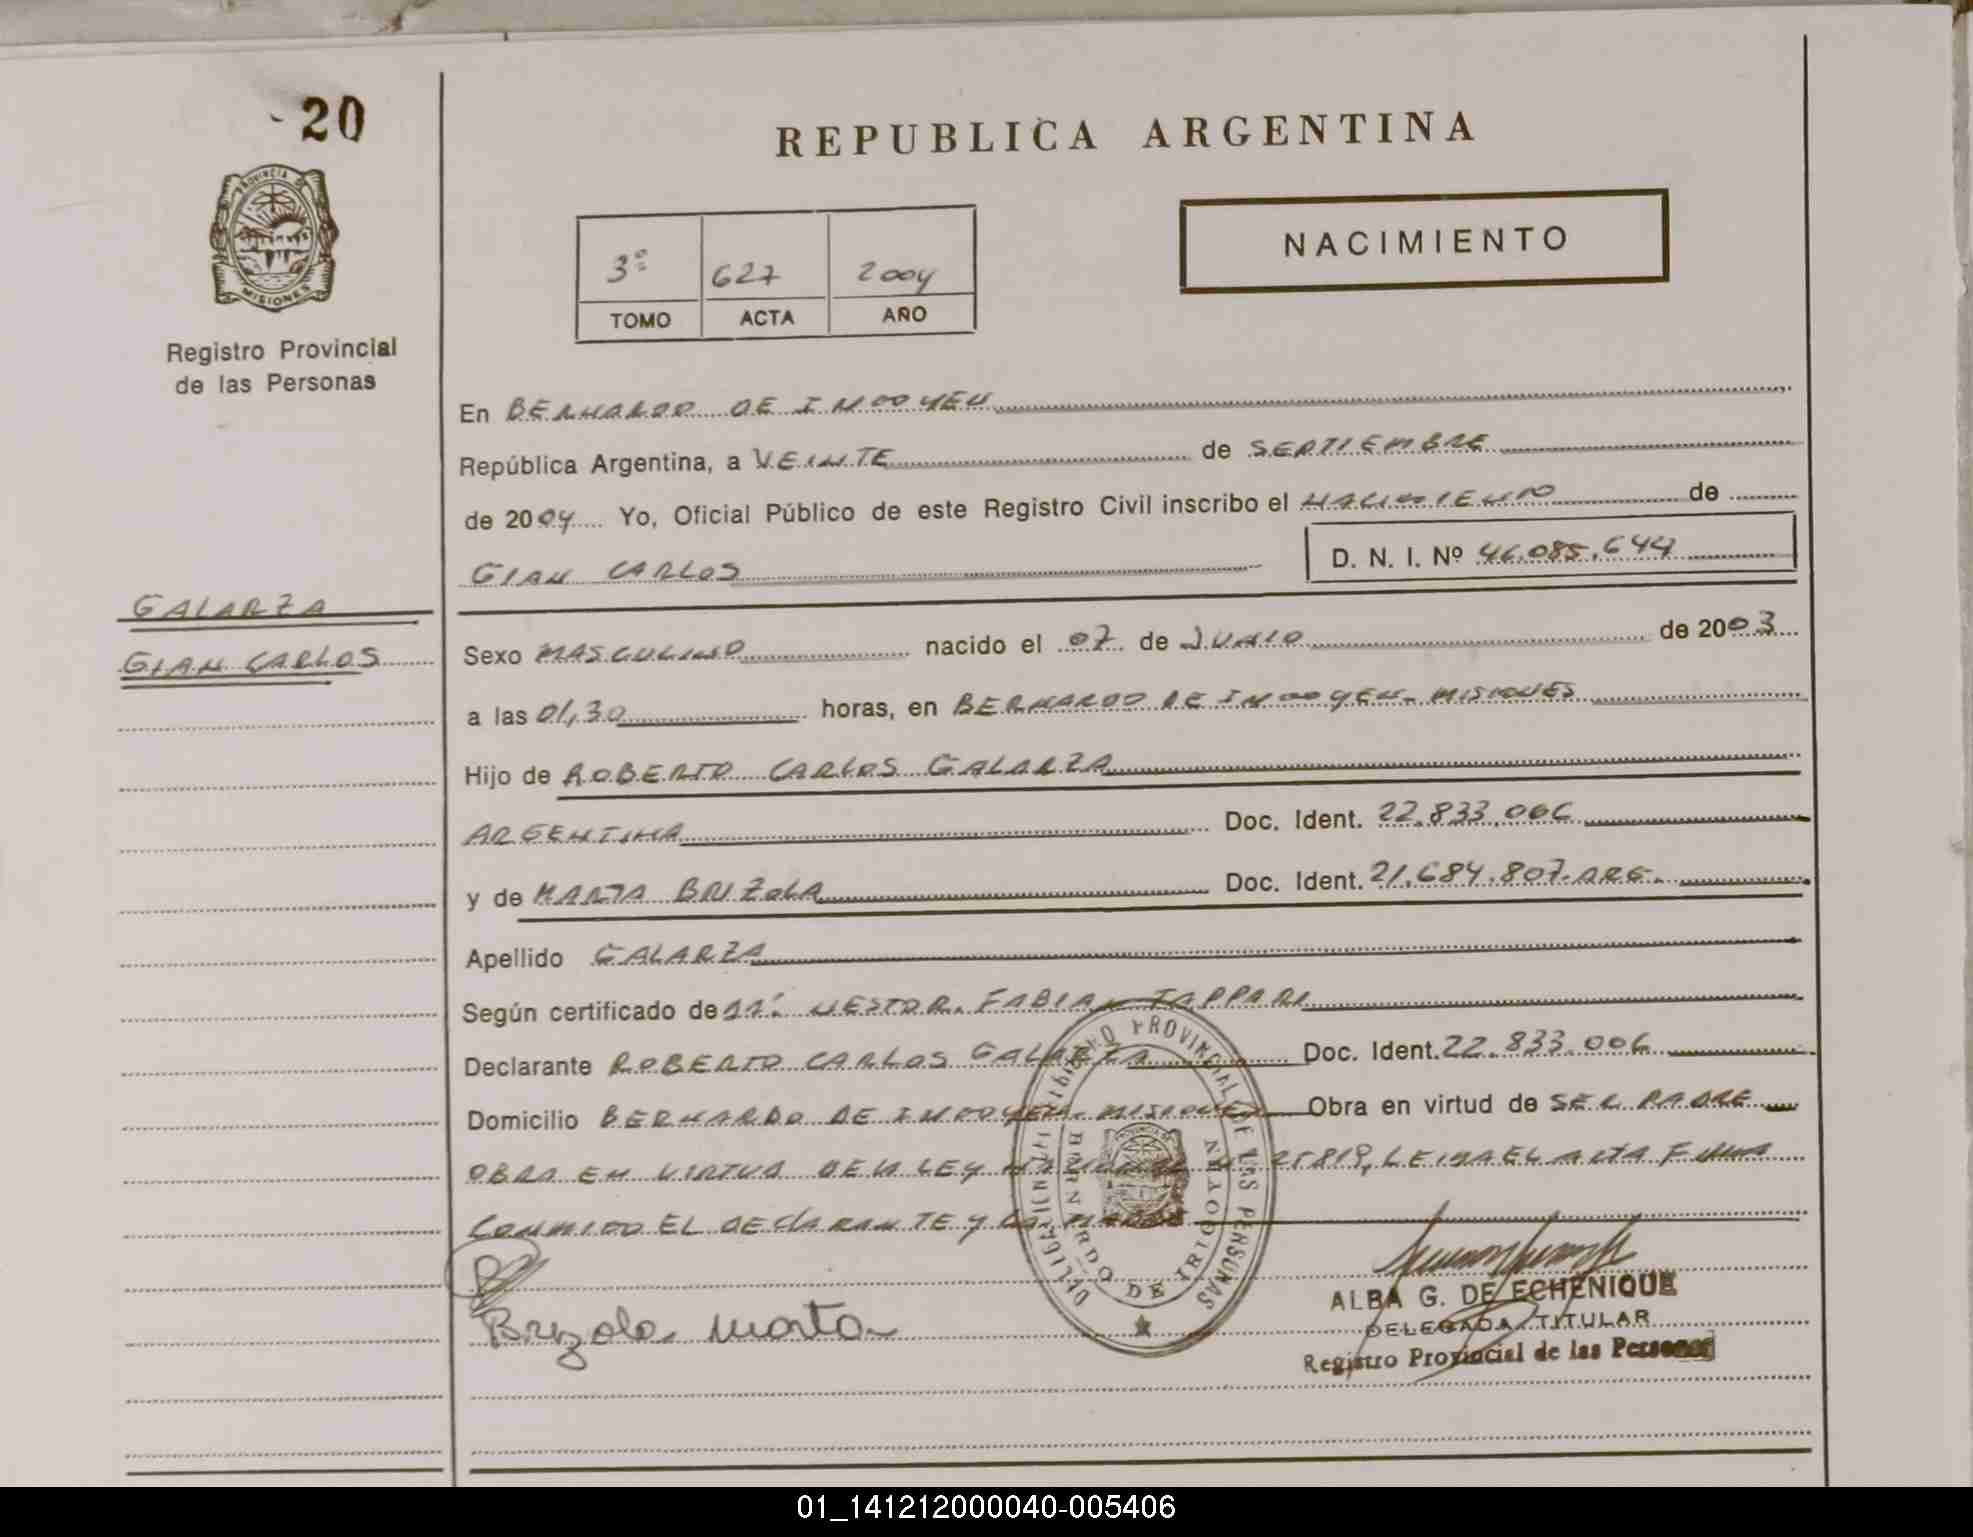 20
PROVINCIA DE
MISIONES
Registro Provincial
de las Personas
REPUBLICA ARGENTINA
NACIMIENTO
3º 627 2004
TOMO ACTA AÑO
En BERNARDO DE IRIGOYEN
República Argentina, a VEINTE de SEPTIEMBRE
de 2004 Yo, Oficial Público de este Registro Civil inscribo el NACIMIENTO de
GIAN CARLOS D. N. I. Nº 46.085.644
GALARZA
GIAN CARLOS
Sexo MASCULINO nacido el 07 de JUNIO de 2003
a las 01,30 horas, en BERNARDO DE IRIGOYEN - MISIONES
Hijo de ROBERTO CARLOS GALARZA
ARGENTINA Doc. Ident. 22.833.006
y de MARTA BRIZOLA Doc. Ident. 21.684.807. ARG.
Apellido GALARZA
Según certificado de NESTOR FABIAN TAPPARI
Declarante ROBERTO CARLOS GALARZA Doc. Ident. 22.833.006
Domicilio BERNARDO DE IRIGOYEN - MISIONES Obra en virtud de SER PADRE
OBRA EN VIRTUD DE LA LEY NACIONAL 25819, LEIDA EL ACTA FIRMA
CONMIGO EL DECLARANTE Y LA MADRE
Brizola Marta
REGISTRO PROVINCIAL DE LAS PERSONAS
BERNARDO DE IRIGOYEN
ALBA G. DE ECHENIQUE
DELEGADA TITULAR
Registro Provincial de las Personas
01_141212000040-005406